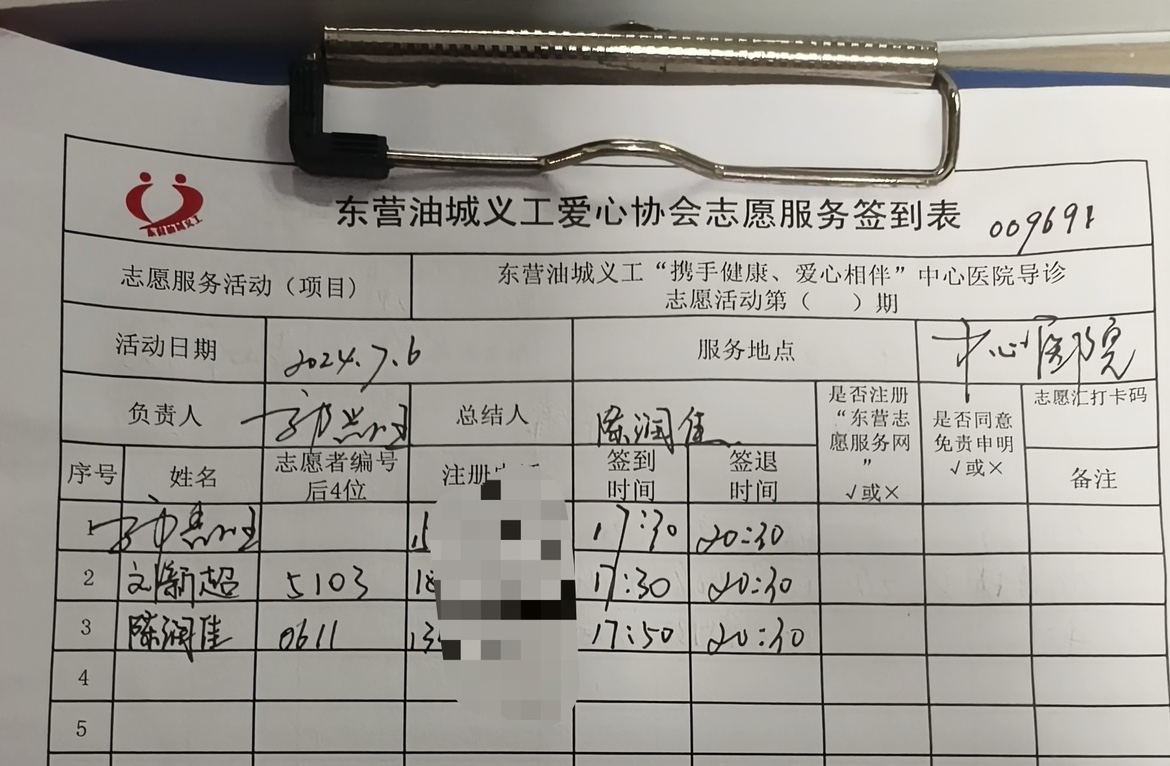 东营油城义工爱心协会志愿服务签到表 009691
志愿服务活动（项目）
东营油城义工“携手健康、爱心相伴”中心医院导诊
志愿活动第（ ）期
活动日期 2024.7.6 服务地点 中心医院
负责人
总结人 陈润佳
是否注册
“东营志
愿服务网
”
√或×
是否同意
免责申明
√或×
志愿汇打卡码
备注
序号 姓名
志愿者编号
后4位
注册
签到
时间
签退
时间
1 15 17:30 20:30
2 刘新超 5103 18 17:30 20:30
3 陈润佳 0611 13 17:50 20:30
4
5